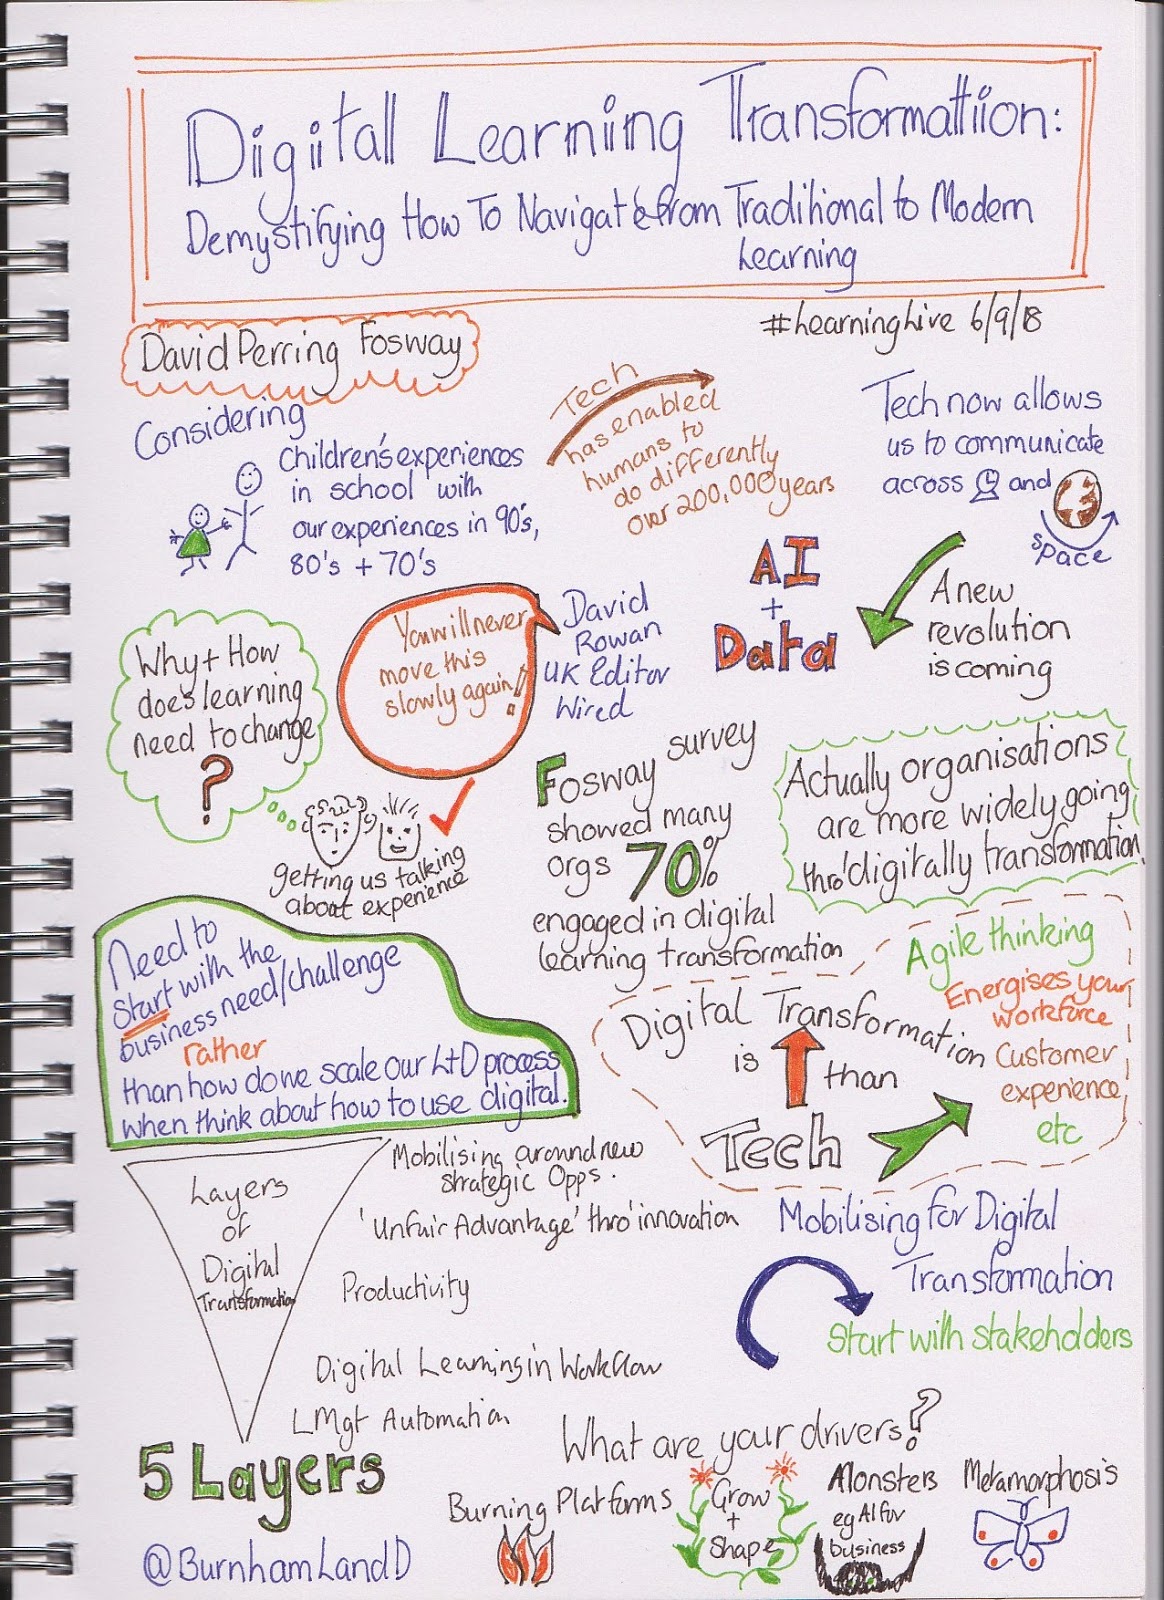 Digital Learning Transformation:
Demystifying How To Navigate from Traditional to Modern
Learning
#learninghive 6/9/18
David Perring Fosway
Considering
Children's experiences
in school with
our experiences in 90's,
80's + 70's
Tech
has enabled
humans to
do differently
over 200,000 years
Tech now allows
us to communicate
across and
space
AI
+
Data
A new
revolution
is coming
Why + How
does learning
need to change
?
getting us talking
about experience
You will never
move this
slowly again!
David
Rowan
UK Editor
Wired
Fosway survey
showed many
orgs 70%
engaged in digital
learning transformation
Actually organisations
are more widely going
thro' digitally transformation
Need to
start with the
business need/challenge
rather
than how do we scale our L+D process
when think about how to use digital.
Digital Transformation
is
than
Tech
Agile thinking
Energises your
workforce
Customer
experience
etc
Layers
of
Digital
Transformation
Mobilising around new
strategic Opps.
'Unfair Advantage' thro' innovation
Productivity
Digital Learning in Workflow
LMgt Automation
5 Layers
Mobilising for Digital
Transformation
Start with stakeholders
What are your drivers?
Burning Platforms
Grow
+
Shape
Monsters
eg AI for
business
Metamorphosis
@BurnhamLandD